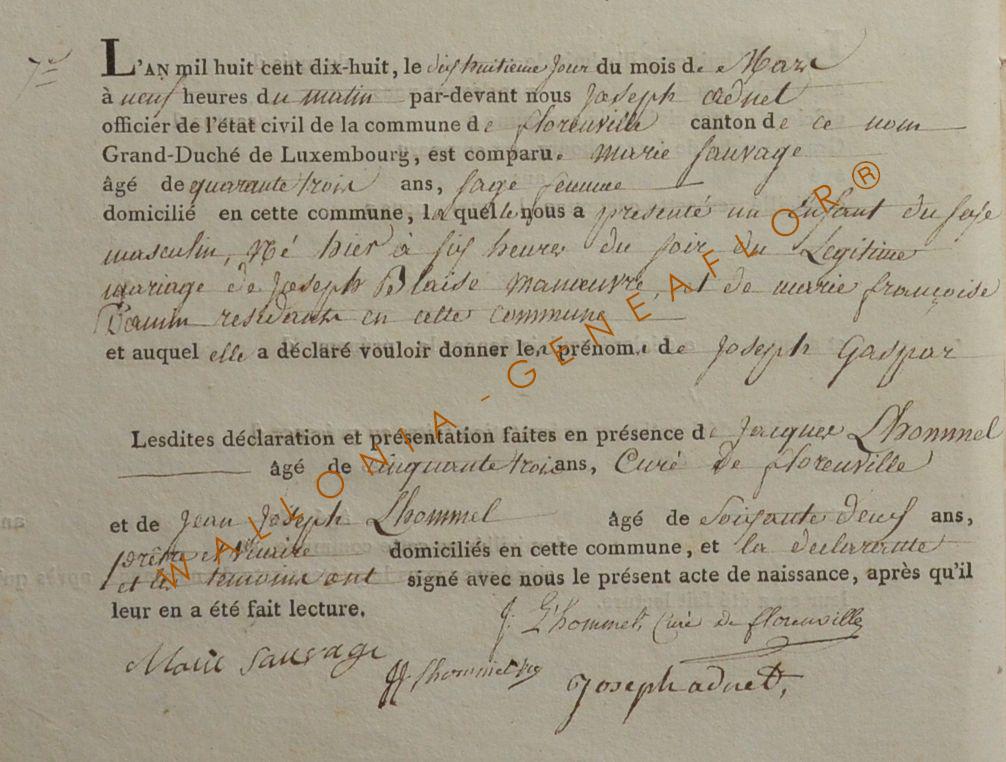 7e
L'AN mil huit cent dix-huit, le dix huitieme jour du mois de Mars
à neuf heures du matin par-devant nous Joseph adnet
officier de l'état civil de la commune de florenville canton de ce nom
Grand-Duché de Luxembourg, est comparue marie Sauvage
âgé de quarante trois ans, sage femme
domicilié en cette commune, laquelle nous a présenté un Enfant du sexe
masculin, Né hier à six heures du soir du Légitime
mariage de Joseph Blaise manœuvre, et de marie françoise
residants en cette commune
et auquel elle a déclaré vouloir donner les prénoms de Joseph Gaspar
Lesdites déclaration et présentation faites en présence de Jacques Lhommel
âgé de cinquante trois ans, Curé de florenville
et de Jean Joseph Lhommel âgé de soixante deux ans,
prêtre et Vicaire domiciliés en cette commune, et la déclarante
et les temoins ont signé avec nous le présent acte de naissance, après qu'il
leur en a été fait lecture.
J. L'hommel, Curé de florenville
Marie Sauvage
JJ Lhommel
Joseph adnet,
WALLONIA-GENEAFLOR®